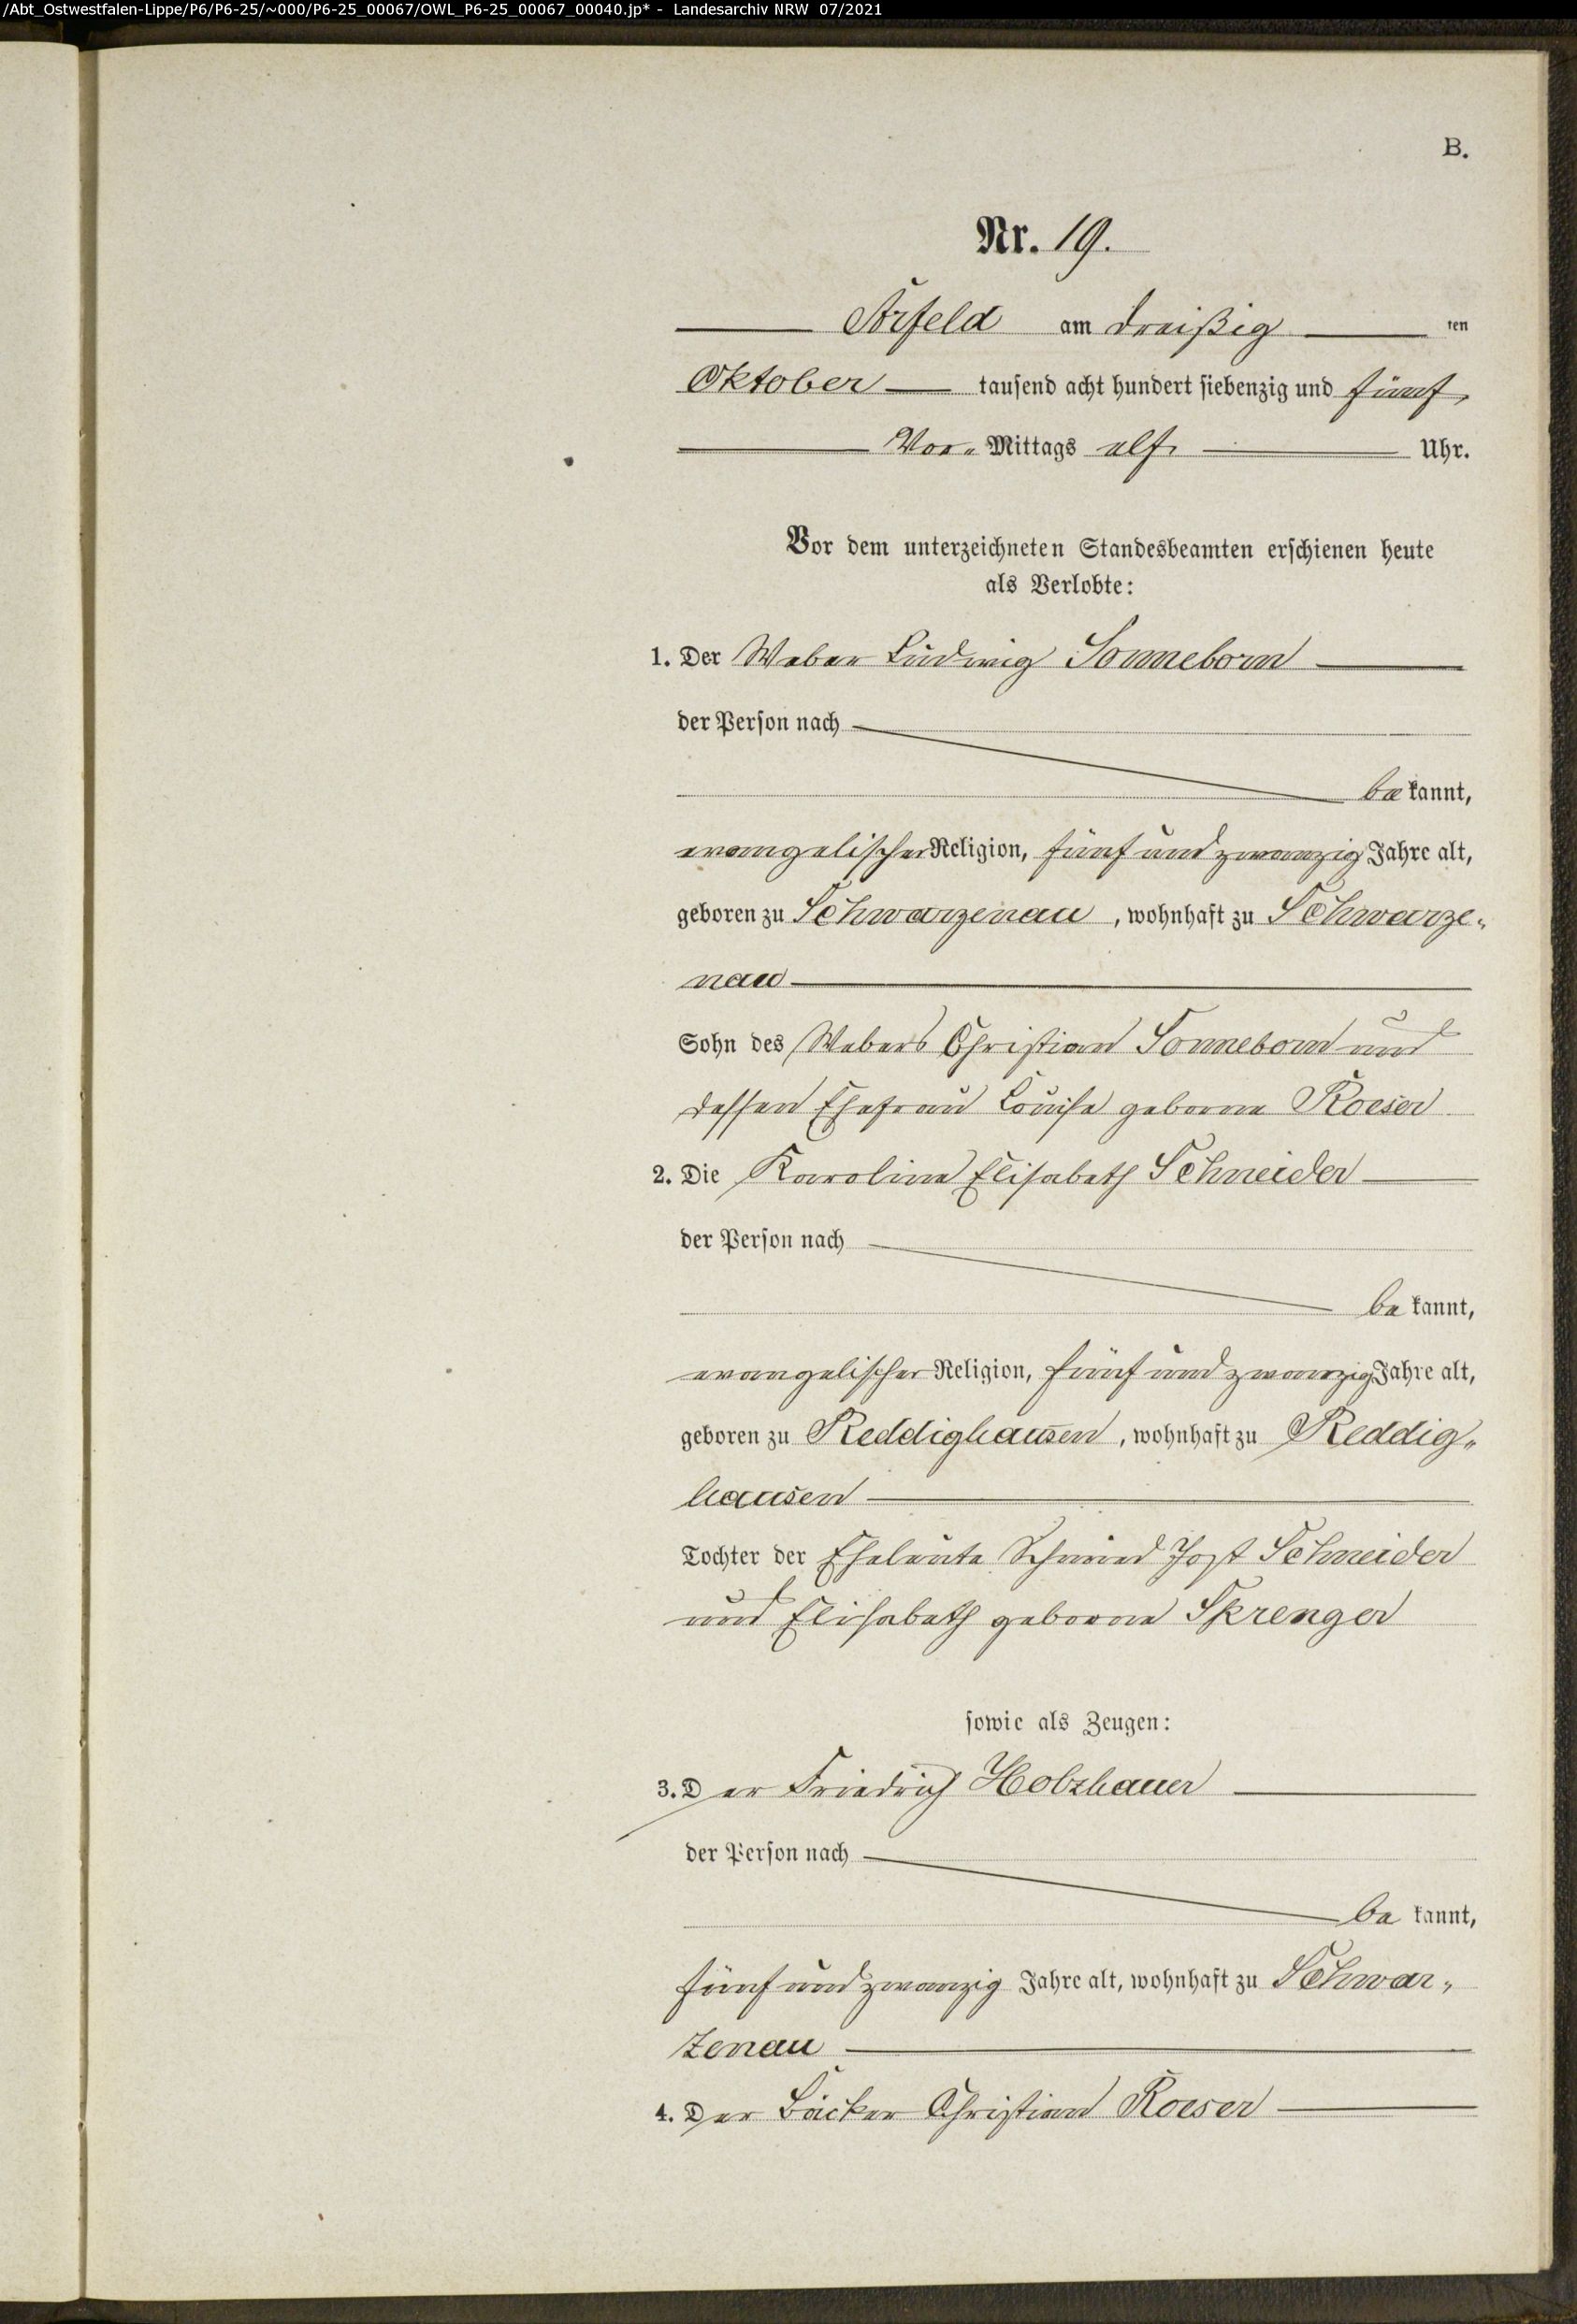 /Abt_Ostwestfalen-Lippe/P6/P6-25/~000/P6-25_00067/OWL_P6-25_00067_00040.jp* - Landesarchiv NRW 07/2021
B.
Nr. 19.
Arfeld am dreißig ten
Oktober tausend acht hundert siebenzig und fünf,
Vor- Mittags elf Uhr.
Vor dem unterzeichneten Standesbeamten erschienen heute
als Verlobte:
1. Der Weber Ludwig Sonneborn
der Person nach
be kannt,
evangelischer Religion, fünf und zwanzig Jahre alt,
geboren zu Schwarzenau, wohnhaft zu Schwarze-
nau
Sohn des Webers Christian Sonneborn und
dessen Ehefrau Louise geborne Roeser
2. Die Karoline Elisabeth Schneider
der Person nach
be kannt,
evangelischer Religion, fünf und zwanzig Jahre alt,
geboren zu Reddighausen, wohnhaft zu Reddig-
hausen
Tochter der Eheleute Schmied Jost Schneider
und Elisabeth geborne Skrenger
sowie als Zeugen:
3. Der Friedrich Holzhauer
der Person nach
be kannt,
fünf und zwanzig Jahre alt, wohnhaft zu Schwar-
zenau
4. Der Bäcker Christian Roeser